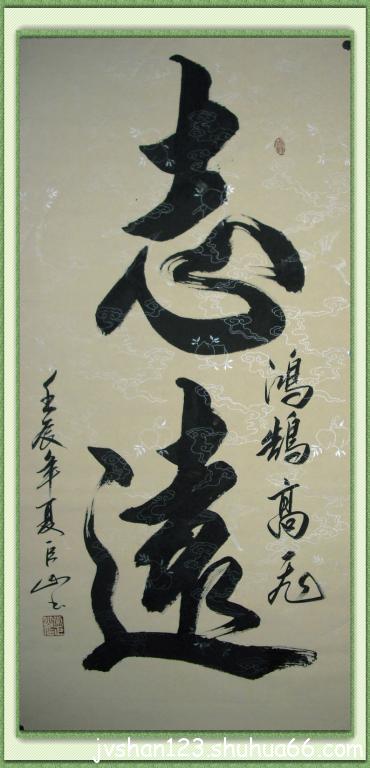 志遠
鴻鵠高飛
壬辰年夏巨山书
jvshan123.shuhua66.com